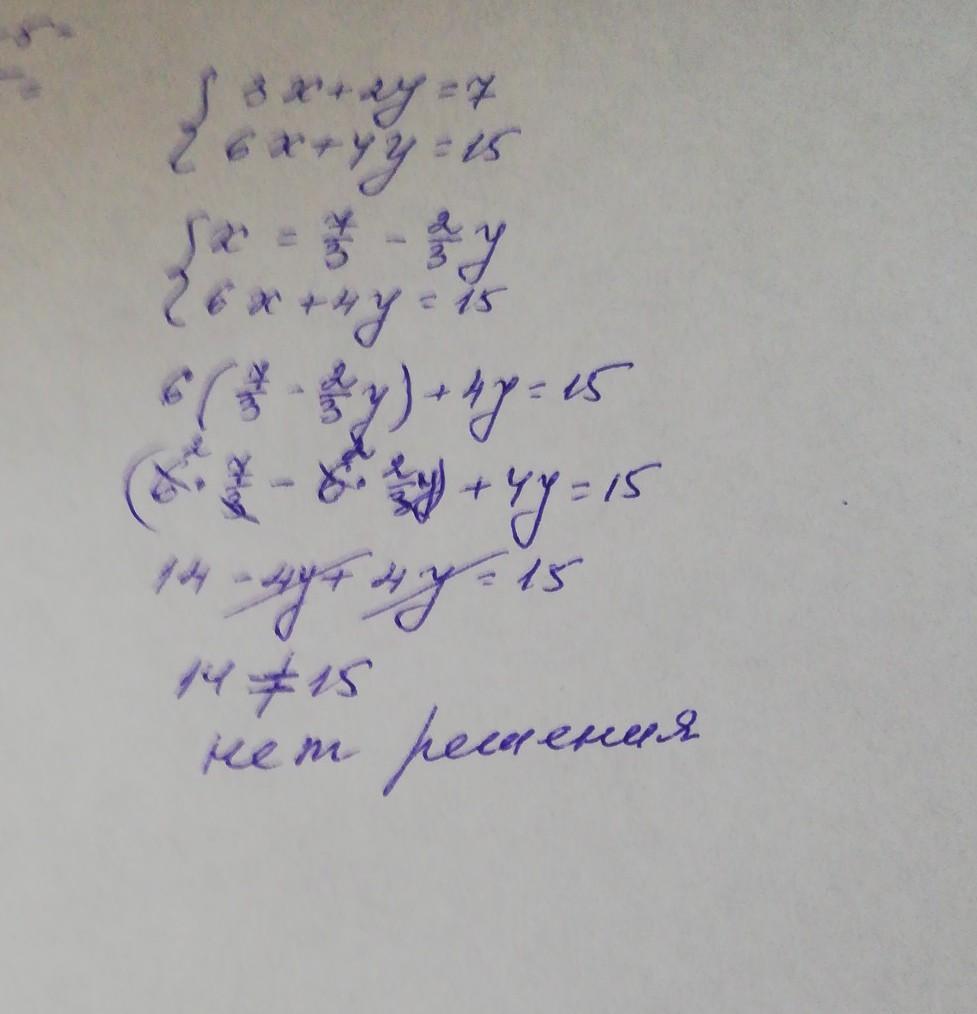 { 3x + 2y = 7
{ 6x + 4y = 15
{ x = 7/3 - 2/3 y
{ 6x + 4y = 15
6 ( 7/3 - 2/3 y ) + 4y = 15
( 6² · 7/3 - 6² · 2/3 y ) + 4y = 15
14 - 4y + 4y = 15
14 ≠ 15
нет решения